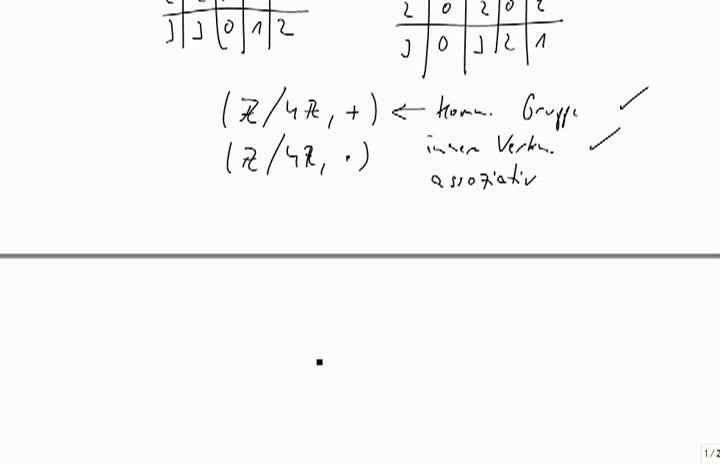 2 0 2 0 2
3 3 0 1 2
3 0 3 2 1
(ℤ/4ℤ, +) ← komm. Gruppe ✓
(ℤ/4ℤ, ·) innere Verkn. ✓
assoziativ
1/2